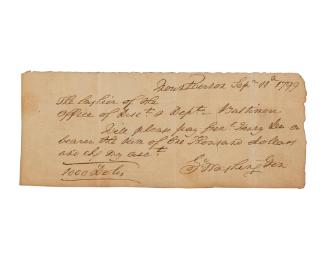 Mount Vernon Sepr 10th 1799
The Cashier of the
Office of Disct & Dept - Baltimore
Will please pay Henry Lee or
bearer the sum of One Thousand dollars
and chg my acct
Go Washington
1000 Dolrs